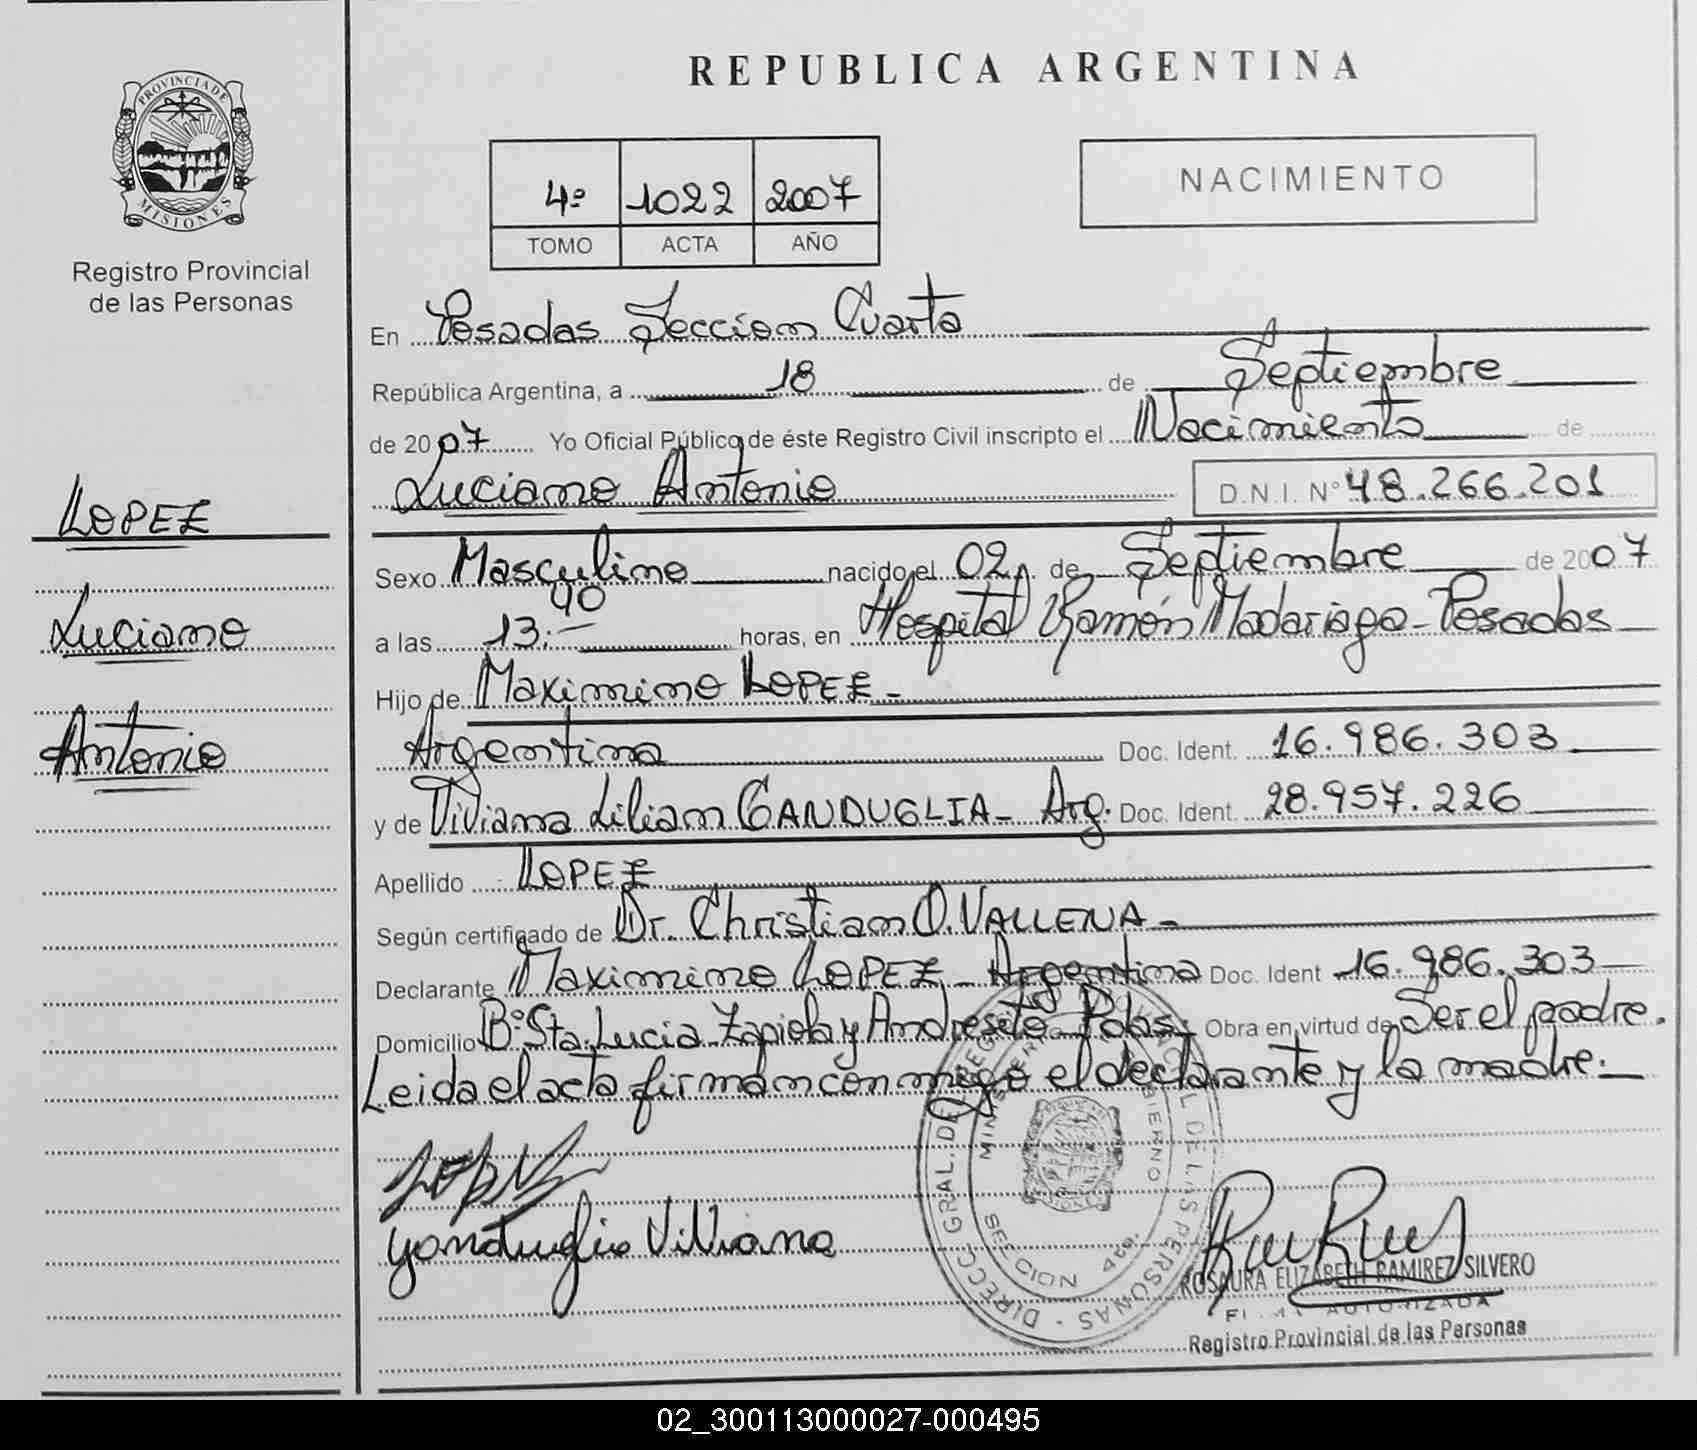 PROVINCIA DE
MISIONES
Registro Provincial
de las Personas
LOPEZ
Luciano
Antonio
REPUBLICA ARGENTINA
4º 1022 2007
TOMO ACTA AÑO
NACIMIENTO
En Posadas Sección Cuarta
República Argentina, a 18 de Septiembre
de 2007 Yo Oficial Público de éste Registro Civil inscripto el Nacimiento de
Luciano Antonio D.N.I. Nº 48.266.201
Sexo Masculino nacido el 02 de Septiembre de 2007
a las 13:40 horas, en Hospital Ramón Madariaga - Posadas
Hijo de Maximino LOPEZ -
Argentina Doc. Ident. 16.986.303
y de Viviana Lilian GANDUGLIA - Arg. Doc. Ident. 28.957.226
Apellido LOPEZ
Según certificado de Dr. Christian O. VALLENA -
Declarante Maximino LOPEZ - Argentina Doc. Ident 16.986.303
Domicilio Bº Sta. Lucia Zapiola y Andresito Pdas. Obra en virtud de Ser el padre.
Leida el acta firman conmigo el declarante y la madre.
DIRECC. GRAL. DE REGISTRO DE LAS PERSONAS
SECCION 4ta.
LOPEZ
Ganduglia Viviana
ROSAURA ELIZABETH RAMIREZ SILVERO
FIRMA AUTORIZADA
Registro Provincial de las Personas
02_300113000027-000495